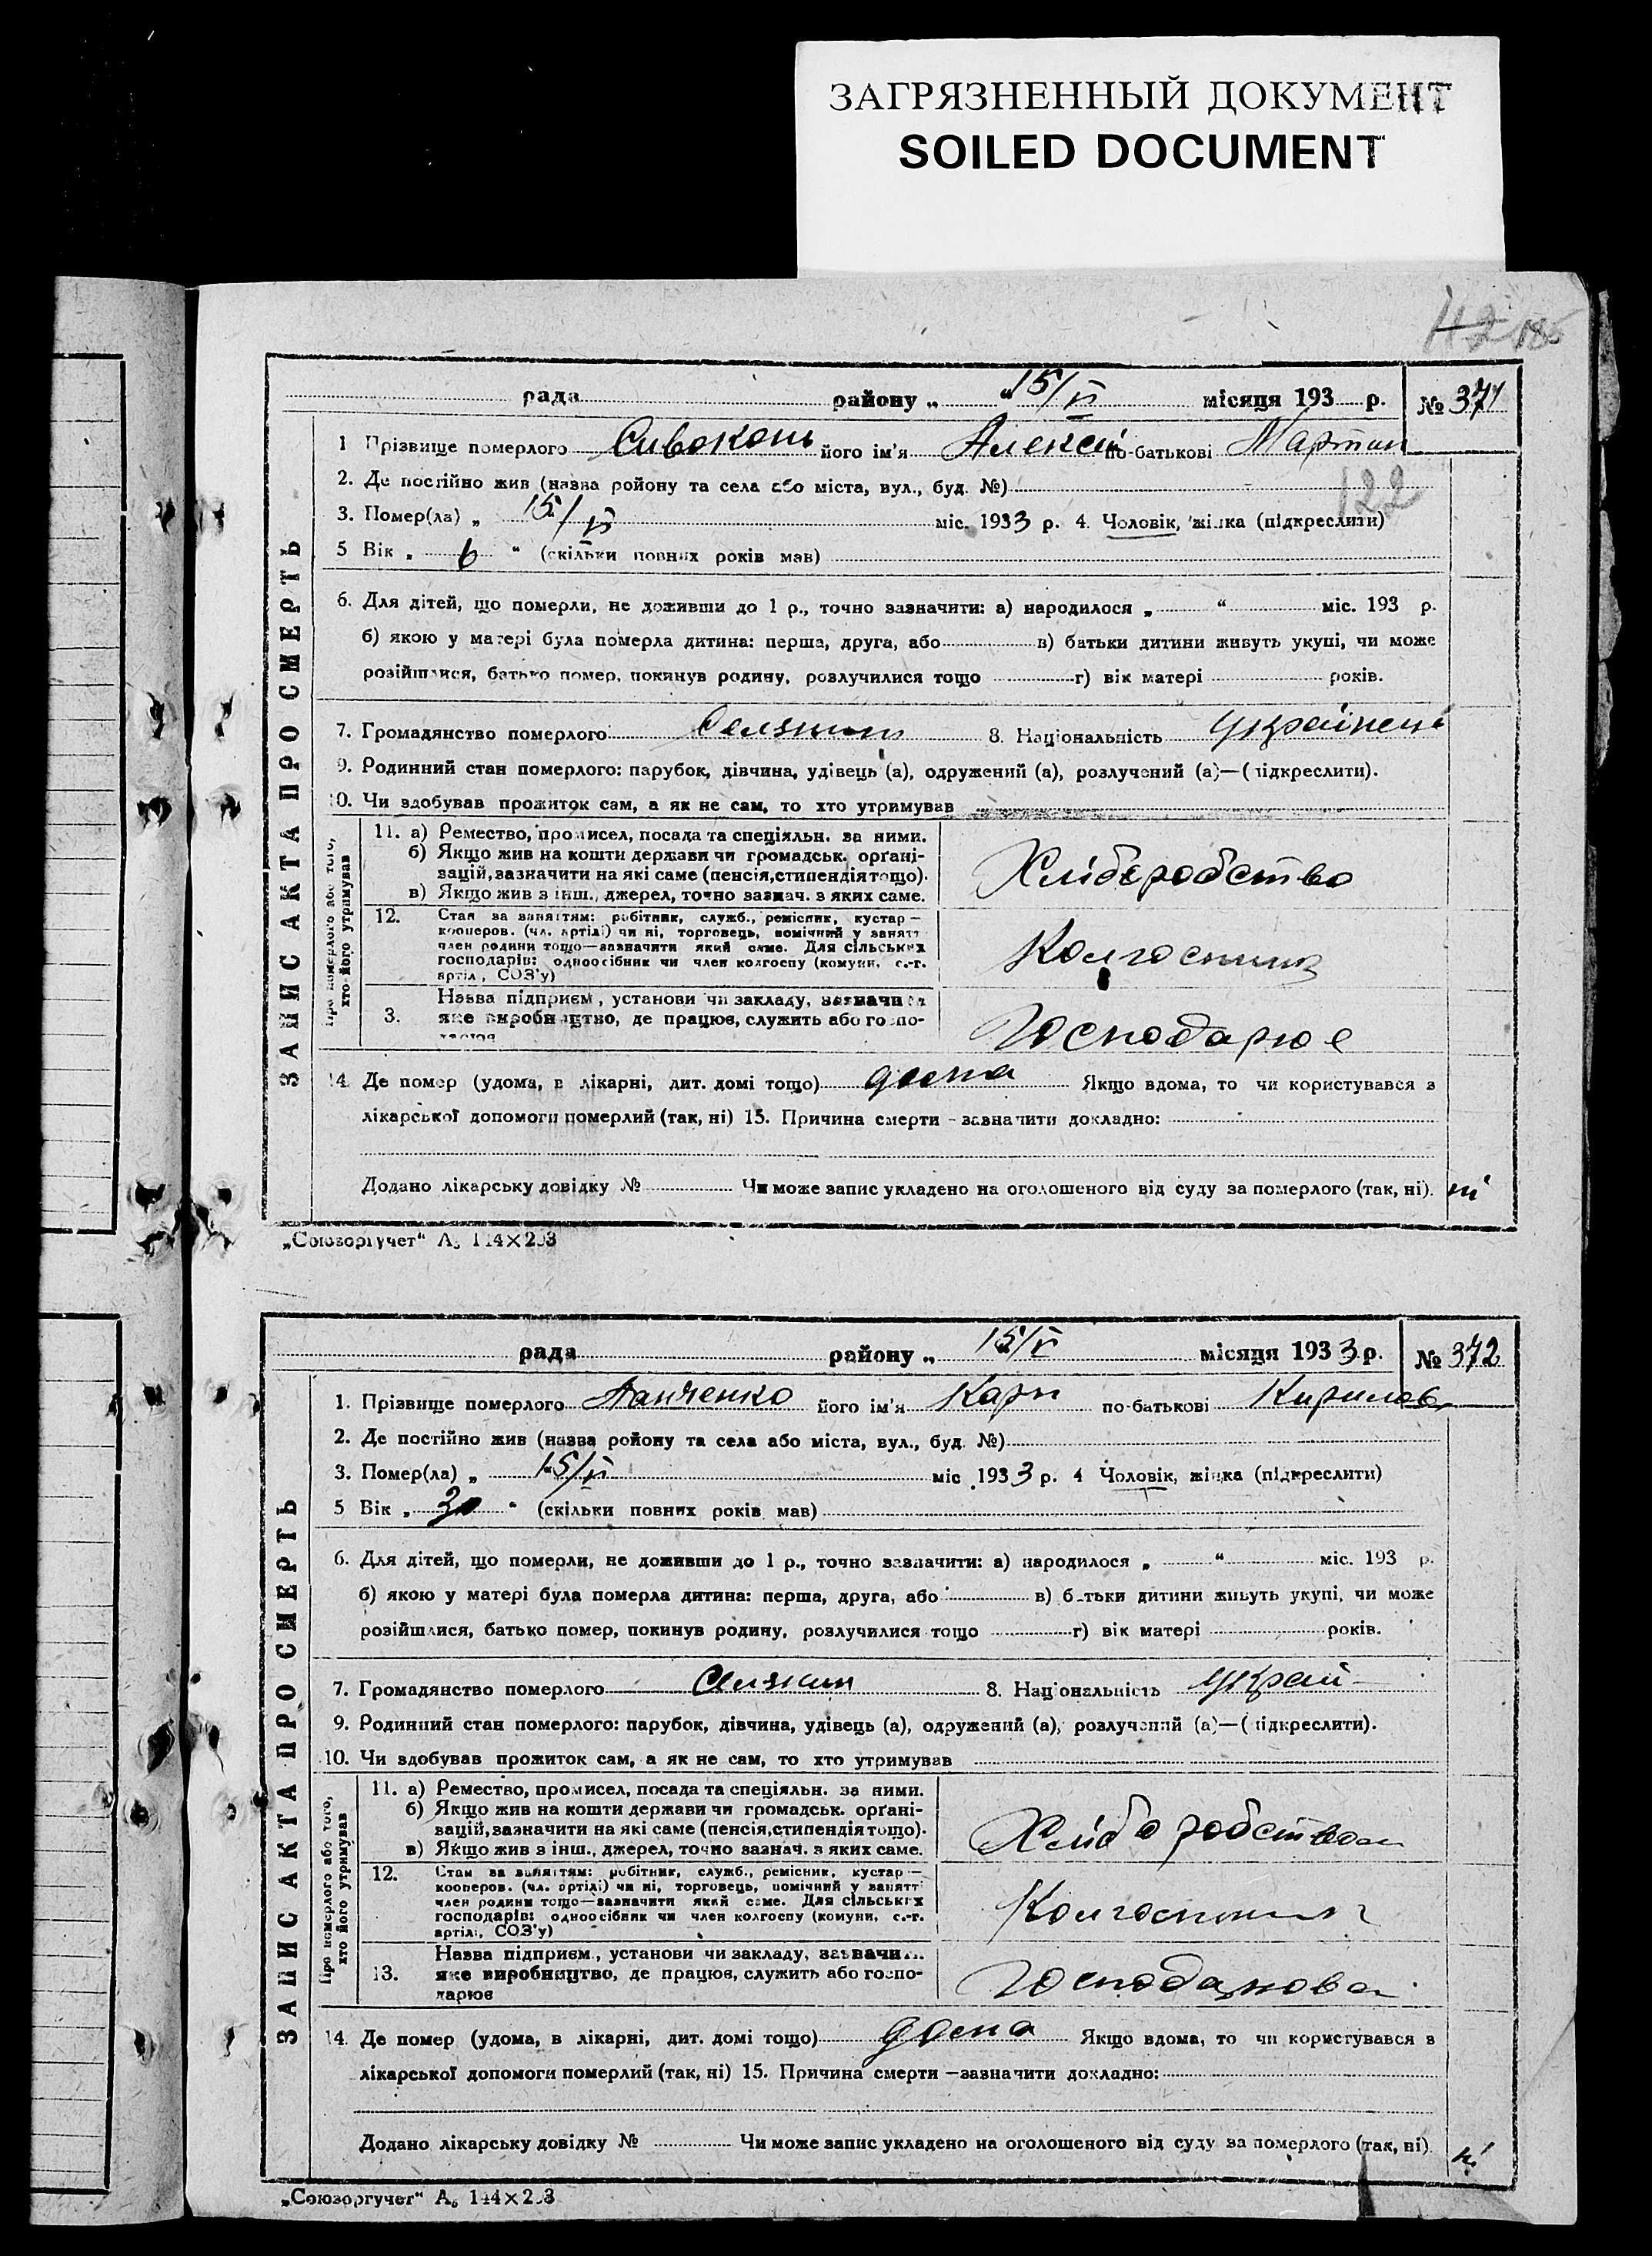 ЗАГРЯЗНЕННЫЙ ДОКУМЕНТ
SOILED DOCUMENT
ЗАПИС АКТА ПРО СМЕРТЬ
рада району „ “ 15/VI місяця 193 р. № 371
1 Прізвище померлого Сивоконь його ім'я Алексей по-батькові Мартин
2. Де постійно жив (назва ройону та села або міста, вул., буд. №)
122
3. Помер(ла) „ 15/VI міс. 1933 р. 4. Чоловік, жінка (підкреслити)
5 Вік „ 6 “ (скільки повних років мав)
6. Для дітей, що померли, не доживши до 1 р., точно зазначити: а) народилося „ “ міс. 193 р.
б) якою у матері була померла дитина: перша, друга, або в) батьки дитини живуть укупі, чи може
розійшлися, батько помер, покинув родину, розлучилися тощо г) вік матері років.
7. Громадянство померлого 8. Національність Українець
9. Родинний стан померлого: парубок, дівчина, удівець (а), одружений (а), розлучений (а)—(підкреслити).
10. Чи здобував прожиток сам, а як не сам, то хто утримував
Про померлого або того,
хто його утримував
11. а) Ремество, промисел, посада та спеціяльн. за ними.
б) Якщо жив на кошти держави чи громадськ. орґані-
зацій, зазначити на які саме (пенсія, стипендія тощо).
в) Якщо жив з інш., джерел, точно зазнач. з яких саме.
Хліборобство
12. Стан за заняттям: робітник, служб., ремісник, кустар—
кооперов. (чл. артілі) чи ні, торговець, помічний у занятт
член родини тощо—зазначити який саме. Для сільських
господарів: одноосібник чи член колгоспу (комуни, с.-г.
артіл., СОЗ'у)
Колгоспник
3. Назва підприєм., установи чи закладу, зазначи
яке виробництво, де працює, служить або госпо-
Господарює
14. Де помер (удома, в лікарні, дит. домі тощо) дома Якщо вдома, то чи користувався з
лікарської допомоги померлий (так, ні) 15. Причина смерти – зазначити докладно:
Додано лікарську довідку № Чи може запис укладено на оголошеного від суду за померлого (так, ні). ні
„Союзоргучет“ А₅ 144×203
ЗАПИС АКТА ПРО СМЕРТЬ
рада району „ 15/VI місяця 1933 р. № 372
1. Прізвище померлого Панченко його ім'я Карп по-батькові Кирилов
2. Де постійно жив (назва ройону та села або міста, вул., буд. №)
3. Помер(ла) „ 15/VI міс. 1933 р. 4 Чоловік, жінка (підкреслити)
5 Вік „ 30 “ (скільки повних років мав)
6. Для дітей, що померли, не доживши до 1 р., точно зазначити: а) народилося „ “ міс. 193 р.
б) якою у матері була померла дитина: перша, друга, або в) батьки дитини живуть укупі, чи може
розійшлися, батько помер, покинув родину, розлучилися тощо г) вік матері років.
7. Громадянство померлого 8. Національність Украй
9. Родинний стан померлого: парубок, дівчина, удівець (а), одружений (а), розлучений (а)—(підкреслити).
10. Чи здобував прожиток сам, а як не сам, то хто утримував
Про померлого або того,
хто його утримував
11. а) Ремество, промисел, посада та спеціяльн. за ними.
б) Якщо жив на кошти держави чи громадськ. орґані-
зацій, зазначити на які саме (пенсія, стипендія тощо).
в) Якщо жив з інш., джерел, точно зазнач. з яких саме.
12. Стан за заняттям: робітник, служб., ремісник, кустар—
кооперов. (чл. артілі) чи ні, торговець, помічний у занятт
член родини тощо—зазначити який саме. Для сільських
господарів: одноосібник чи член колгоспу (комуни, с.-г.
артіл., СОЗ'у)
Колгоспник
13. Назва підприєм., установи чи закладу, зазначи
яке виробництво, де працює, служить або госпо-
дарює
Господарював
14. Де помер (удома, в лікарні, дит. домі тощо) дома Якщо вдома, то чи користувався з
лікарської допомоги померлий (так, ні) 15. Причина смерти —зазначити докладно:
Додано лікарську довідку № Чи може запис укладено на оголошеного від суду за померлого (так, ні) ні
„Союзоргучет“ А₅ 144×203